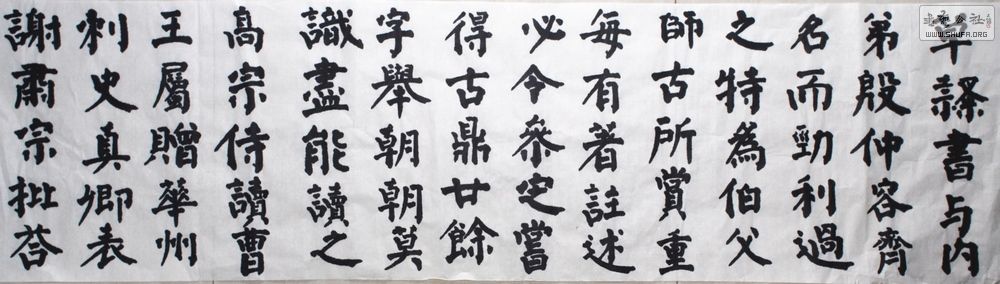 草隸書与内
弟殷仲容齊
名而勁利過
之特為伯父
師古所賞重
每有著註述
必令參定嘗
得古鼎廿餘
字舉朝朝莫
識盡能讀之
高宗侍讀曹
王屬贈華州
刺史真卿表
謝肅宗批荅
WWW.SHUFA.ORG